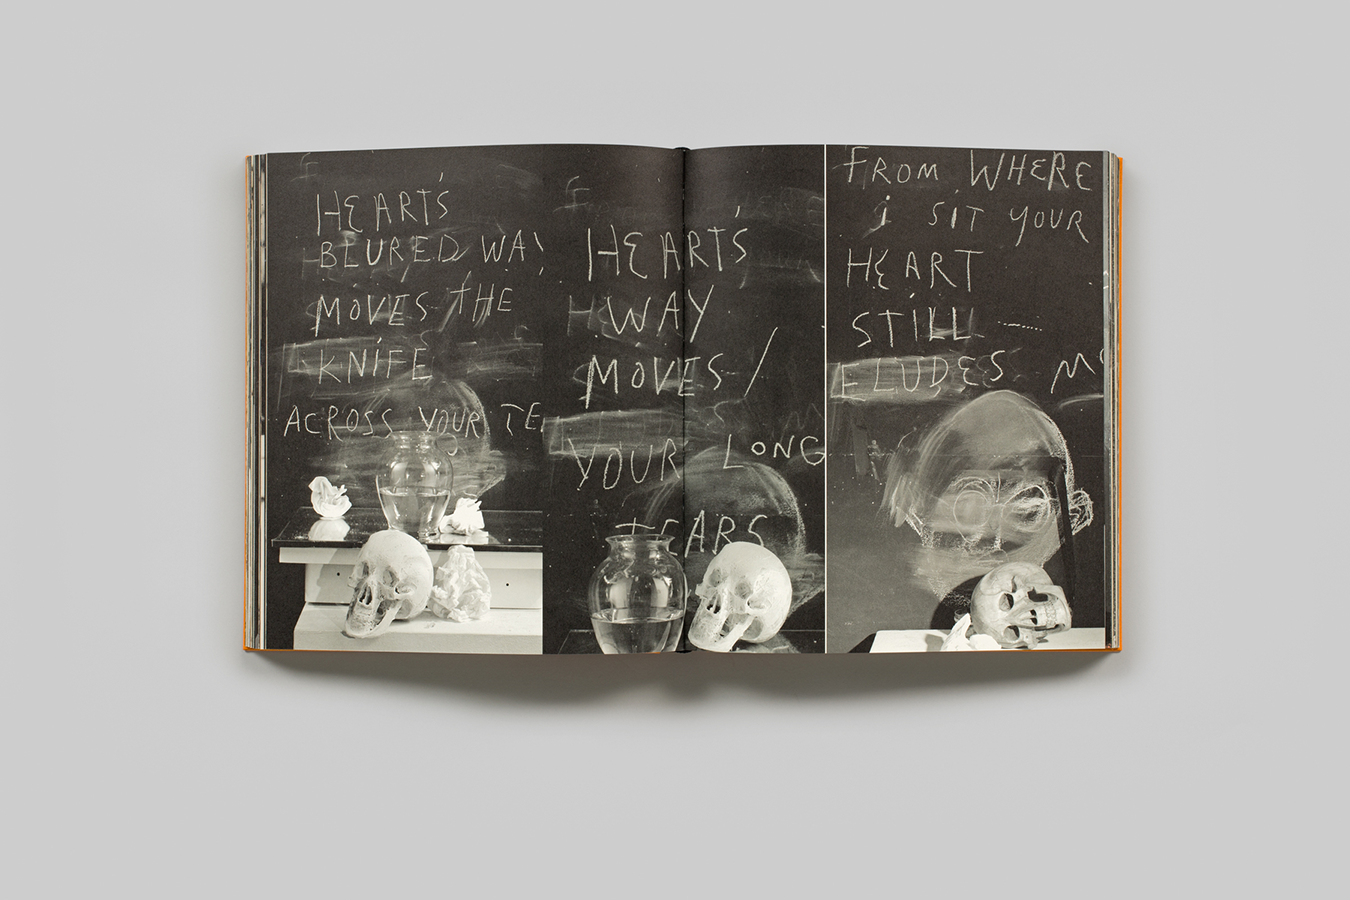 HEART'S
BLURED WAY
MOVES THE
KNIFE
ACROSS YOUR TE
HEART'S
WAY
MOVES /
YOUR LONG
TEARS
FROM WHERE
i SIT YOUR
HEART
STILL —
ELUDES M